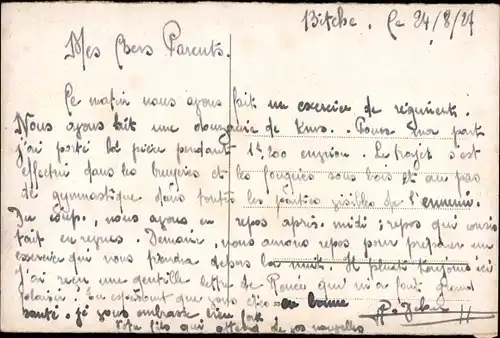 Bitche. Le 24/8/27
Mes Chers Parents.
Ce matin nous avons fait un exercice de régiment.
Nous avons fait une douzaine de kms. Pour ma part
j'ai porté la pièce pendant 1k,200 environ. Le trajet s'est
effectué dans les bruyères et les fougères sous bois et au pas
de gymnastique dans toutes les parties visibles de l'ennemi.
Du coup, nous avons eu repos après-midi ; repos qui consis
tait en revues. Demain, nous aurons repos pour préparer un
exercice qui nous prendra dehors la nuit. Il pleut toujours ici
j'ai reçu une gentille lettre de qui m'a fait grand
plaisir ; En espérant que vous êtes en bonne
santé. je vous embrasse bien fort
Votre fils qui attend de vos nouvelles